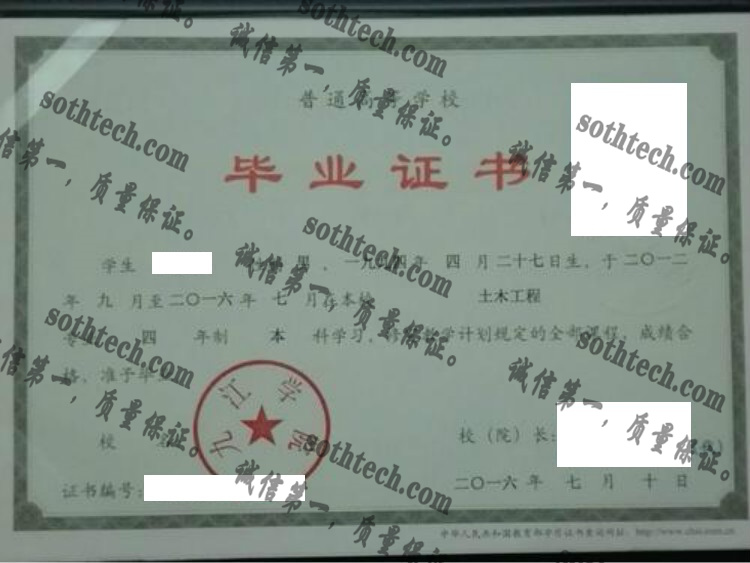 普通高等学校
毕业证书
学生 男,一九九四年 四 月二十七日生,于二〇一二
年 九 月至二〇一六年 七 月在本校 土木工程
专业 四 年制 本 科学习,修完教学计划规定的全部课程,成绩合
格,准予毕业
九江学院
校 校(院)长:
证书编号:
二〇一六年 七 月 十 日
中华人民共和国教育部学历证书查询网址: http://www.chsi.com.cn
sothtech.com
诚信第一,质量保证。
sothtech.com
诚信第一,质量保证。
sothtech.com
诚信第一,质量保证。
sothtech.com
诚信第一,质量保证。
sothtech.com
诚信第一,质量保证。
sothtech.com
诚信第一,质量保证。
sothtech.com
诚信第一,质量保证。